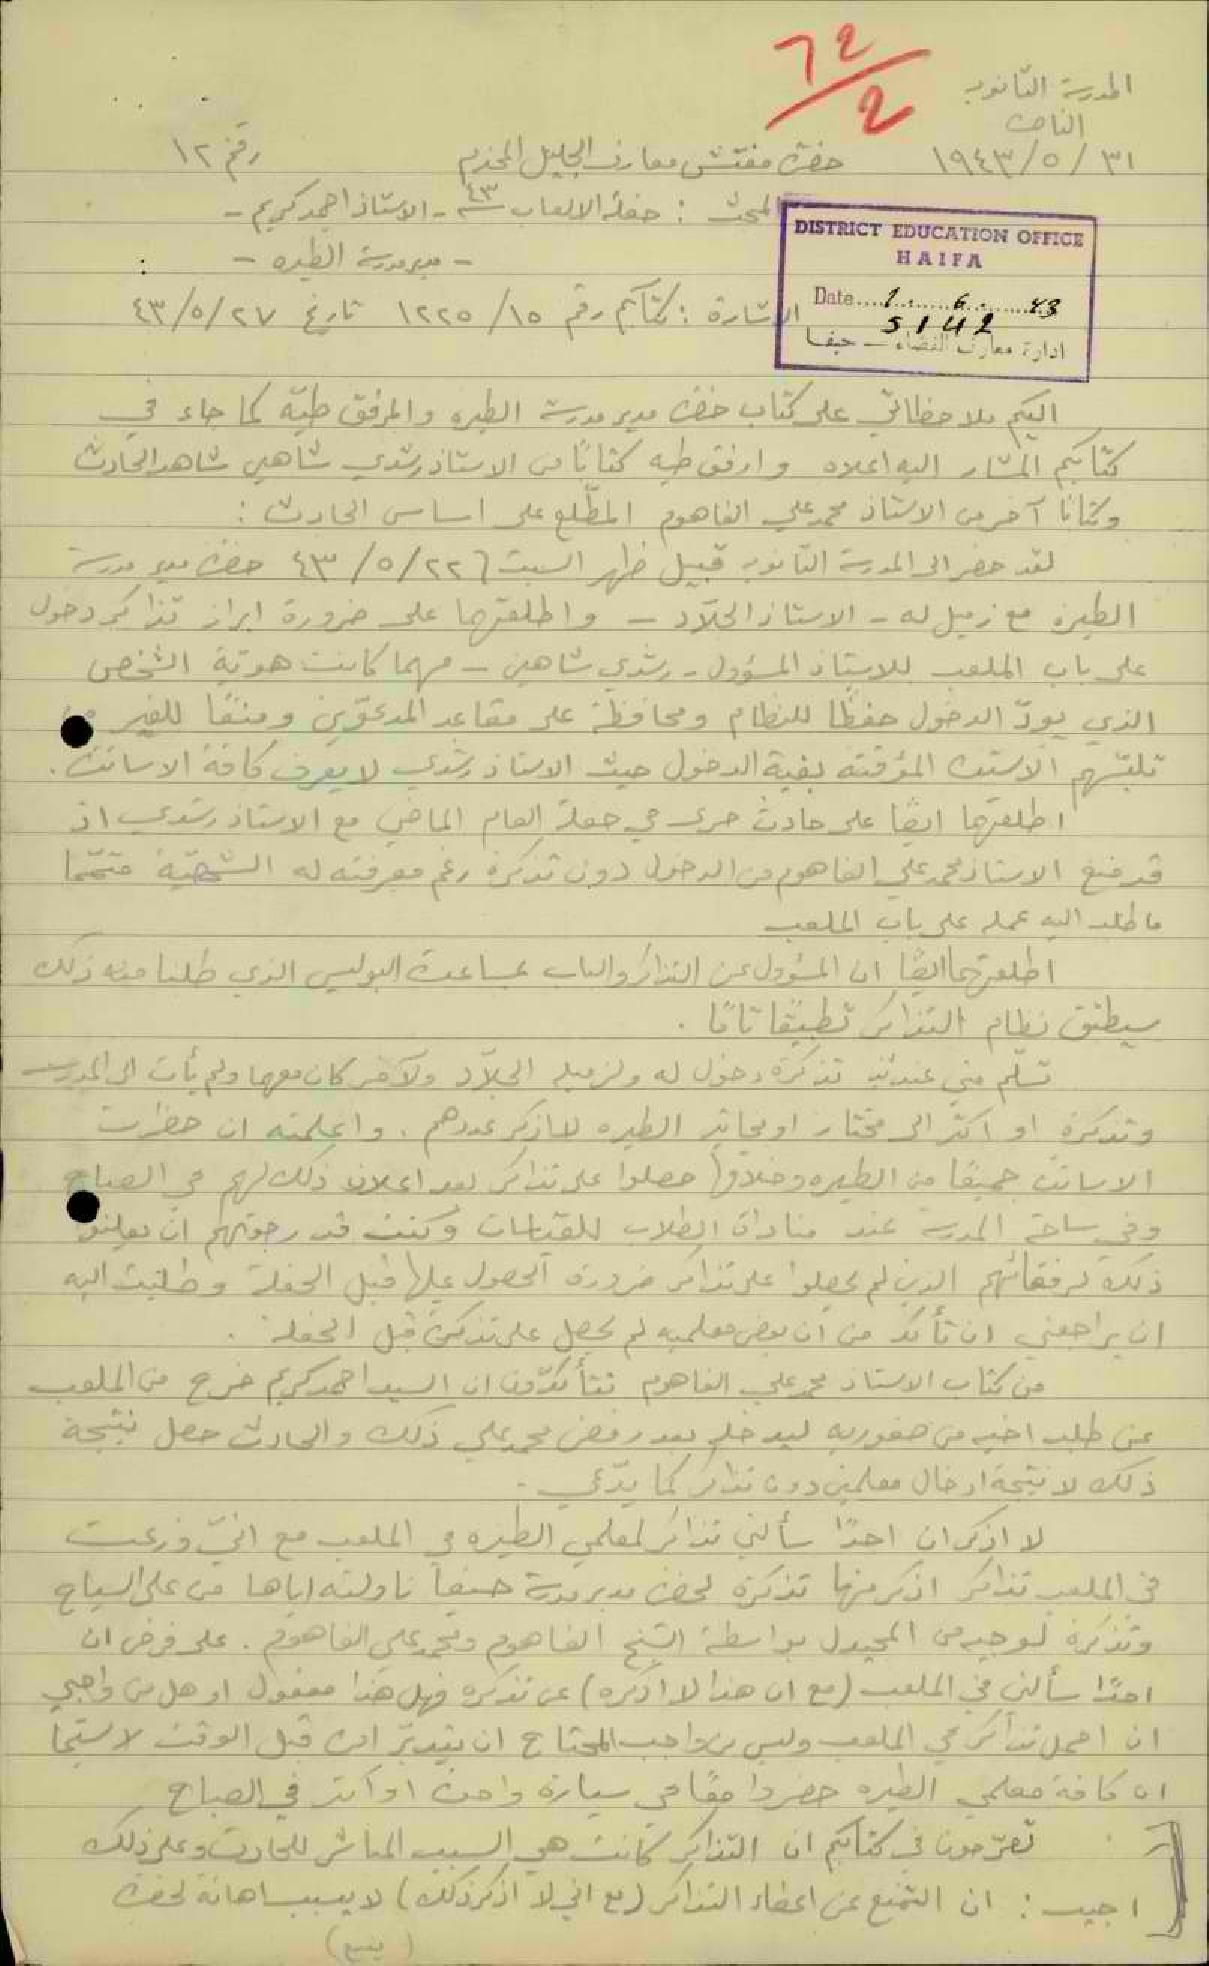 72/2
المدرسة الثانوية
الناصرة
٣١/٥/١٩٤٣ حضرة مفتش معارف الجليل المحترم رقم ١٢
المبحث : حفلة الالعاب ٤٣ - الاستاذ احمد كريم -
- مدير مدرسة الطيره -
DISTRICT EDUCATION OFFICE
HAIFA
Date 1. 6. 43
5142
ادارة معارف القضاء – حيفا
الاشارة : كتابكم رقم ١٥/١٢٢٥ تاريخ ٢٧/٥/٤٣
اليكم ملاحظاتي على كتاب حضرة مدير مدرسة الطيره والمرفق طيّه كما جاء في
كتابكم المشار اليه اعلاه وارفق طيه كتابًا من الاستاذ رشدي شاهين شاهد الحادث
وكتابًا آخر من الاستاذ محمد علي الفاهوم المطّلع على اساس الحادث :
لقد حضر الى المدرسة الثانوية قبيل ظهر السبت ٢٢/٥/٤٣ حضرة مدير مدرسة
الطيره مع زميل له - الاستاذ الجلّاد - واطلعتهما على ضرورة ابراز تذاكر دخول
على باب الملعب للاستاذ المسؤول - رشدي شاهين - مهما كانت هوية الشخص
الذي يودّ الدخول حفظًا للنظام ومحافظة على مقاعد المدعوّين ومنعًا للغير من
تلبّسهم الاستذة المؤقتة بغية الدخول حيث الاستاذ رشدي لا يعرف كافة الاساتذة.
اطلعتهما ايضًا على حادث جرى في حفلة العام الماضي مع الاستاذ رشدي اذ
قد منع الاستاذ محمد علي الفاهوم من الدخول دون تذكرة رغم معرفته له الشخصيّة متمّمًا
ما طلب اليه عمله على باب الملعب
اطلعتهما ايضًا ان المسؤول عن التذاكر والباب بمساعدة البوليس الذي طلبنا منه ذلك
سيطبّق نظام التذاكر تطبيقًا تامًا .
تسلّم مني عندئذ تذكرة دخول له ولزميله الجلّاد ولآخر كان معهما ولم يأت الى المدرسة
وتذكرة او اكثر الى مختار او مخاتير الطيره لا اذكر عددهم . واعلمته ان حضرات
الاساتذة جميعًا من الطيره وخلافها حصلوا على تذاكر بعد اعلان ذلك لهم في الصباح
وفي ساحة المدرسة عند مناداة الطلاب للقياسات وكنت قد رجوتهم ان يعلنوا
ذلك لرفقائهم الذين لم يحصلوا على تذاكر ضرورة الحصول عليها قبل الحفلة وطلبت اليه
ان يراجعني ان تأكد من ان بعض معلميه لم يحصل على تذكرة قبل الحفلة .
من كتاب الاستاذ محمد علي الفاهوم تتأكدّون ان السيد احمد كريم خرج من الملعب
عن طلب اخيه من صفوريه ليدخله بعد رفض محمد علي ذلك والحادث حصل نتيجة
ذلك لا نتيجة ادخال معلمين دون تذاكر كما يدّعي .
لا اذكر ان احدًا سألني تذاكر لمعلمي الطيره في الملعب مع انيّ وزعت
في الملعب تذاكر اذكر منها تذكرة لحضرة مدير مدرسة ناولته اياها من على السياج
وتذكرة لوجيه من المجيدل بواسطة الشيخ الفاهوم ومحمد علي الفاهوم . على فرض ان
احدًا سألني في الملعب (مع ان هذا لا اذكره) عن تذكره فهل هذا معقول او هل من واجبي
ان احمل تذاكر في الملعب وليس من واجب المحتاج ان يتدبّر امره قبل الوقت لا سيّما
ان كافة معلمي الطيره حضروا معًا في سيارة واحدة او اكثر في الصباح
تصّرحون في كتابكم ان التذاكر كانت هي السبب المباشر للحادث وعلى ذلك
اجيب : ان التمنع عن اعطاء التذاكر (مع اني لا اذكر ذلك) لا يسبب اهانة لحضرة
(يتبع)